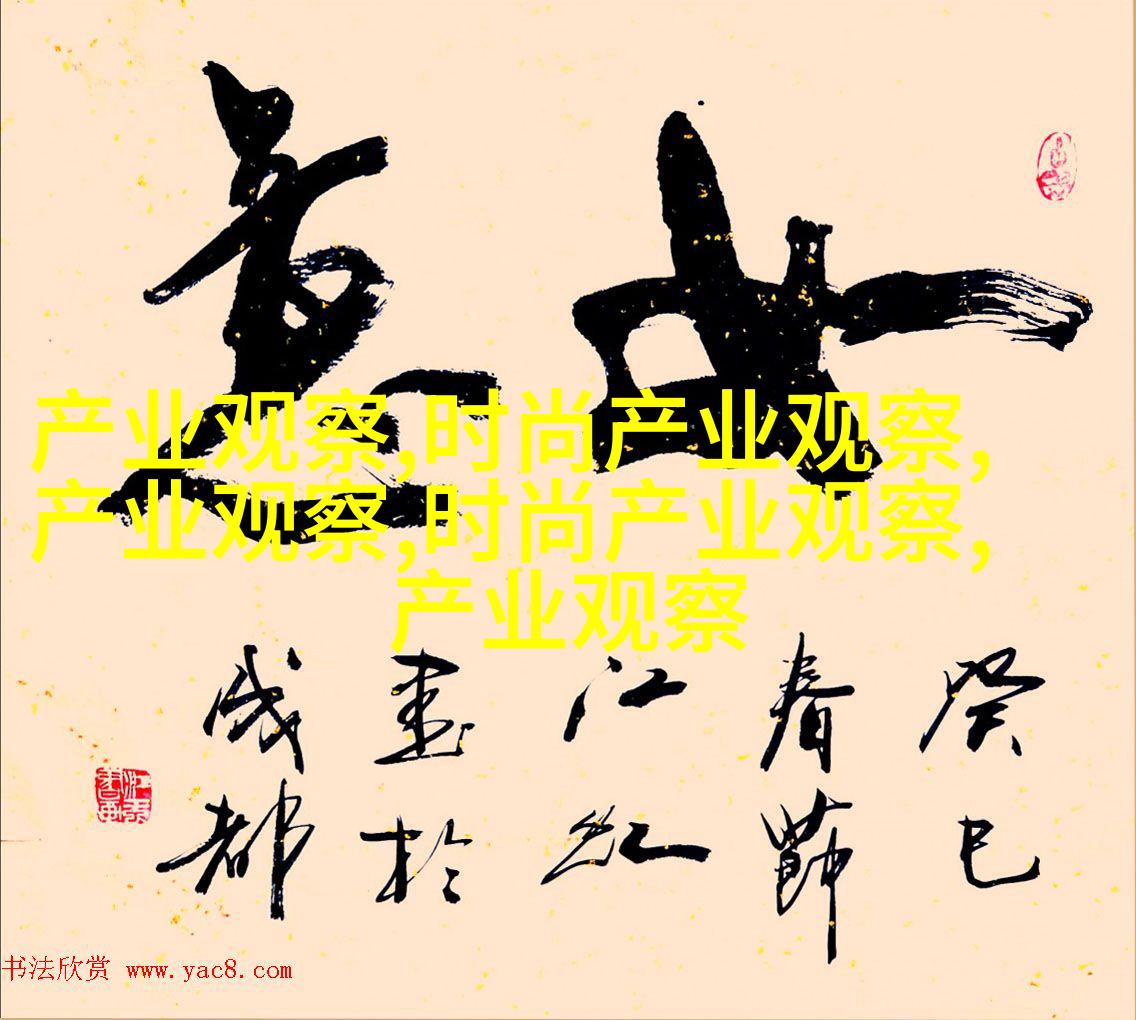 如意
产业观察,时尚产业观察,
产业观察,时尚产业观察,
产业观察
癸巳
春節
江红
書於
成都
书法欣赏 www.yac8.com